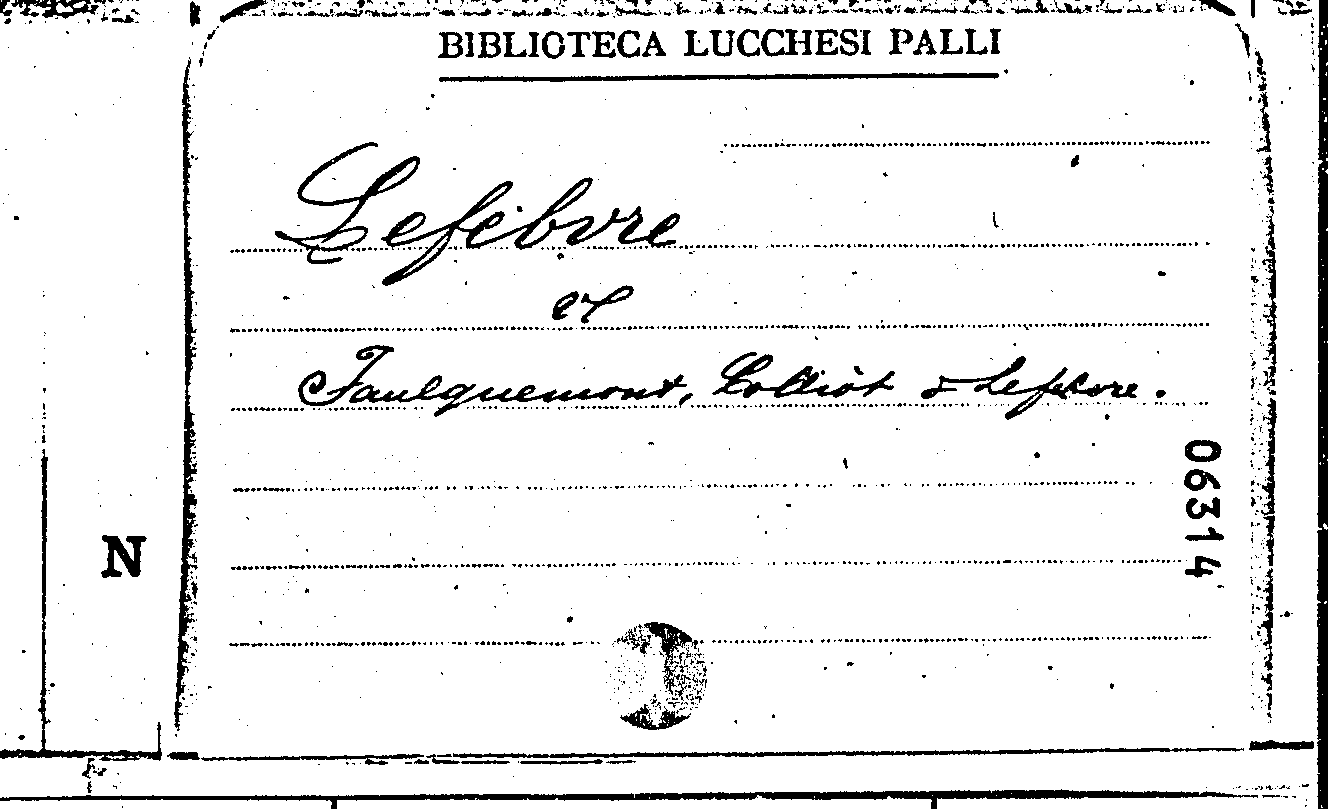 BIBLIOTECA LUCCHESI PALLI
Lefebvre
et
Faulquemont, Lolliot & Lefebvre.
06314
N